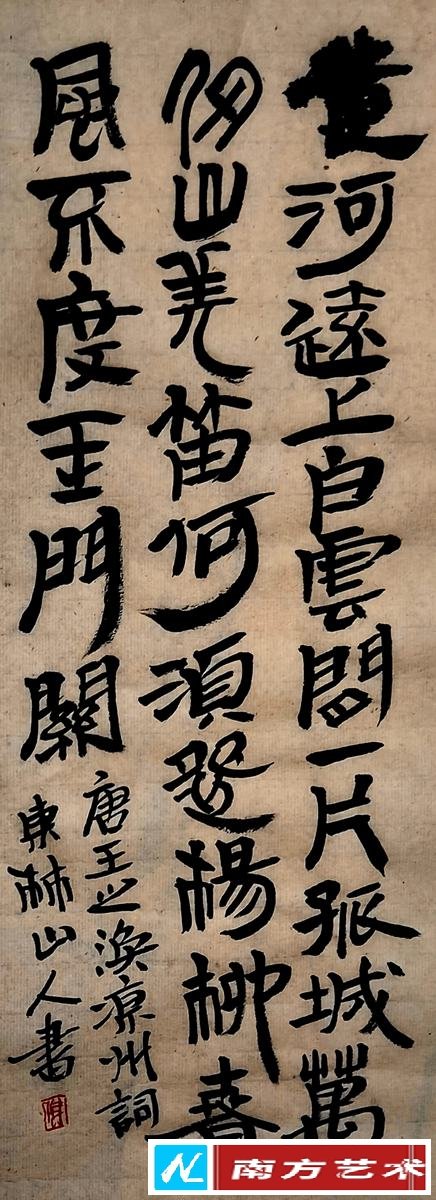 黄河遠上白雲間一片孤城萬
仞山羌笛何須怨楊柳春
風不度玉門關
唐王之渙凉州詞
東林山人書
南方艺术